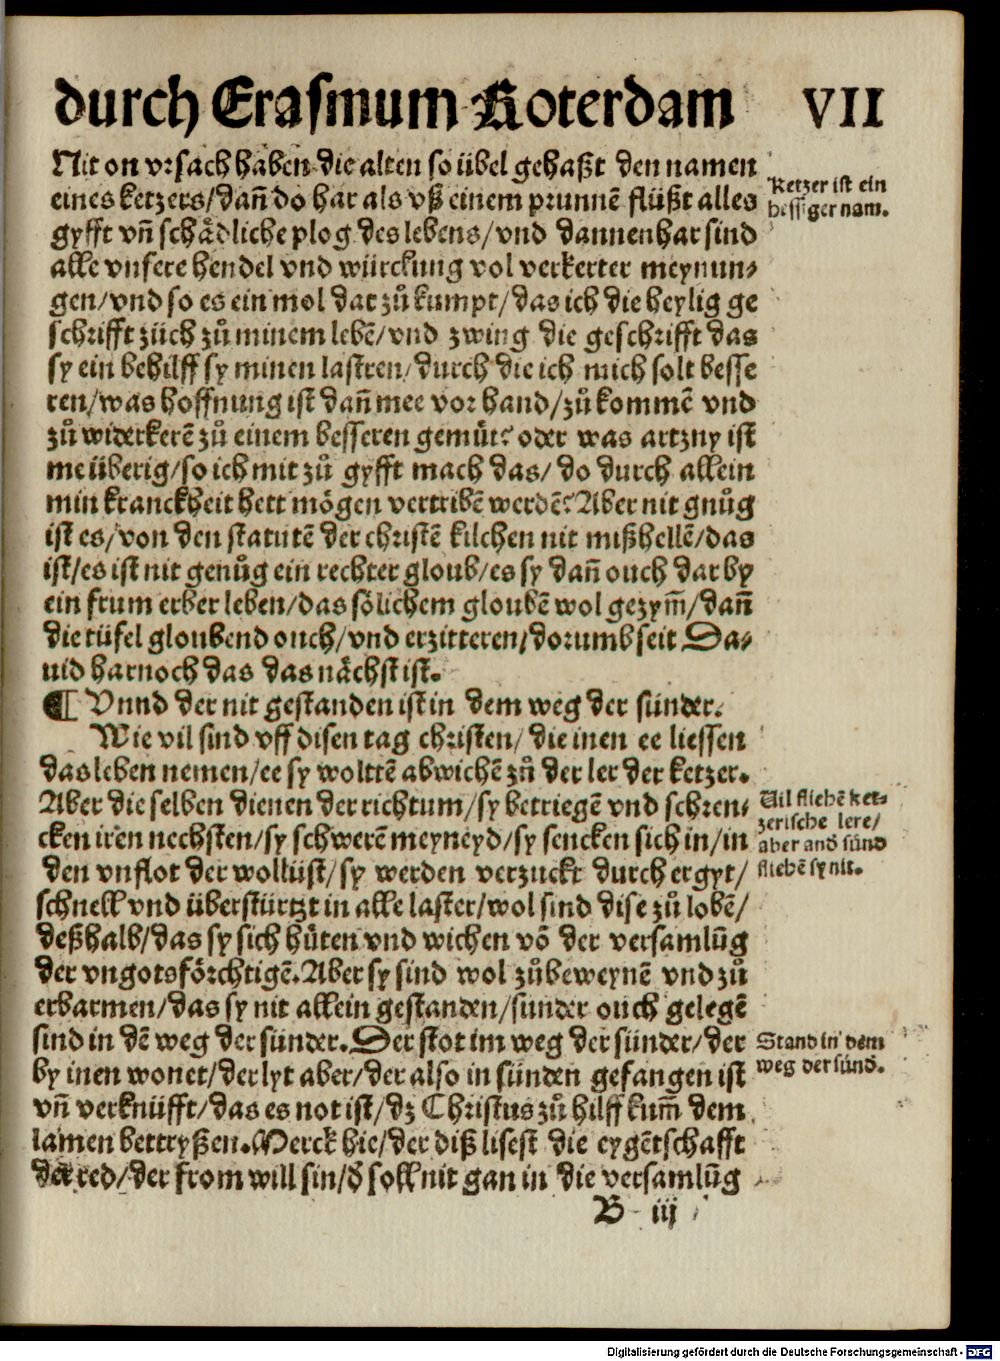 durch Erasmum Roterdam VII
Nit on vrsach haben die alten so übel gehaßt den namen
eines ketzers/dañ do har als vß einem prunnē flüßt alles
gyfft vñ schådliche plog des lebens/vnd dannenhar sind
alle vnsere hendel vnd würckung vol verkerter meynun⸗
gen/vnd so es ein mol dar zů kumpt/das ich die heylig ge
schrifft züch zů minem lebē/vnd zwing die geschrifft das
sy ein behilff sy minen lastren/durch die ich mich solt besse
ren/was hoffnung ist dañ mee vor hand/zů kommē vnd
zů widerkerē zů einem besseren gemůt? oder was artzny ist
me überig/so ich mit zů gyfft mach das/do durch allein
min kranckheit hett mögen vertribē werdē? Aber nit gnůg
ist es/von den statutē der christē kilchen nit mißhellē/das
ist/es ist nit genůg ein rechter gloub/es sy dañ ouch dar by
ein frum erber leben/das sölichem gloubē wol gezym̃/dañ
die tüfel gloubend ouch/vnd erzitteren/dorumb seit Da⸗
uid harnoch das das nåchst ist.
¶ Vnnd der nit gestanden ist in dem weg der sünder.
Wie vil sind vff disen tag christen/die inen ee liessen
das leben nemen/ee sy wolttē abwichē zů der ler der ketzer.
Aber die selben dienen der richtum/sy betriegē vnd schren⸗
cken iren nechsten/sy schwerē meyneyd/sy sencken sich in/in
den vnflot der wollüst/sy werden verzuckt durch ergyt/
schnell vnd überstürtzt in alle laster/wol sind dise zů lobē/
deßhalb/das sy sich hůten vnd wichen vō der versamlūg
der vngotsförchtigē. Aber sy sind wol zůbeweynē vnd zů
erbarmen/das sy nit allein gestanden/sunder ouch gelegē
sind in dē weg der sünder. Der stot im weg der sünder/der
by inen wonet/der lyt aber/der also in sünden gefangen ist
vñ verknüfft/das es not ist/dz Christus zů hilff kum̃ dem
lamen bettryßen. Merck hie/der diß lisest die eygētschafft
der red/der from will sin/d̕ soll nit gan in die versamlūg
B iij
Ketzer ist ein
hessiger nam.
Vil fliehē ket⸗
zerische lere/
aber and sünd
fliehē sy nit.
Stand in dem
weg der sünd.
Digitalisierung gefördert durch die Deutsche Forschungsgemeinschaft - DFG